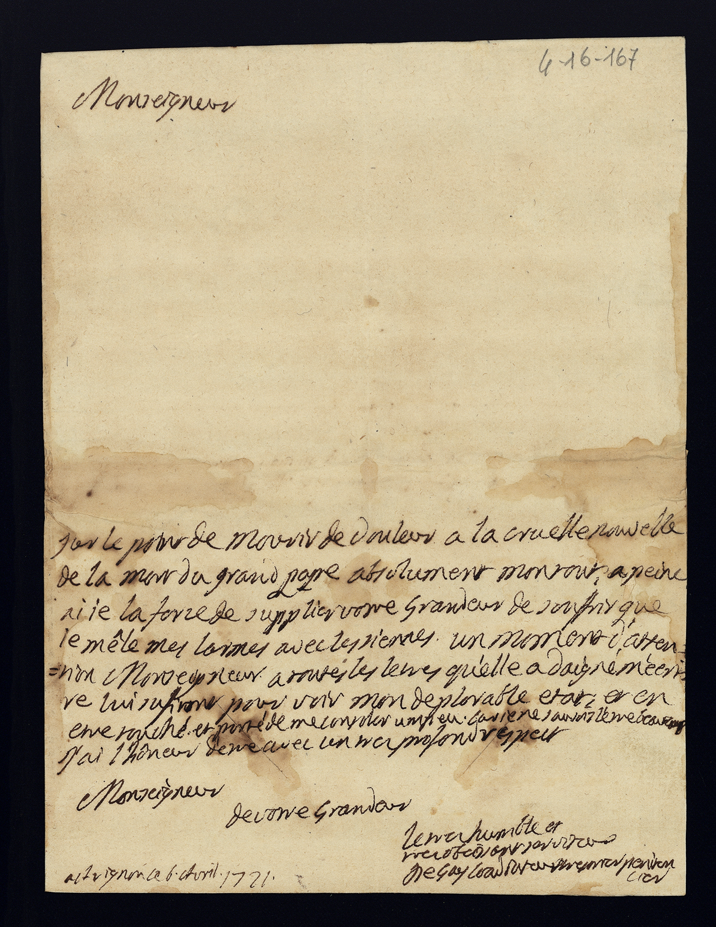 4-16-167
Monseigneur
sur le point de mourir de douleur a la cruelle nouvelle
de la mort du grand pape absolument mon tout, a peine
ai ie la force de supplier votre Grandeur de souffrir que
ie mêle mes larmes avec les siennes. un moment d'atten=
=tion Monseigneur a toutes les letres qu'elle a daigné m'écri=
re lui sufiront pour voir mon deplorable etat, et en
etre touché et porté de me consoler un peu. car ie ne saurois l'etre
J'ai l'hôneur detre avec un tres profond respect
Monseigneur
de votre Grandeur
le tres humble et
tres obeissant serviteur
De Gay
a Avignon ce 6. Avril. 1721.